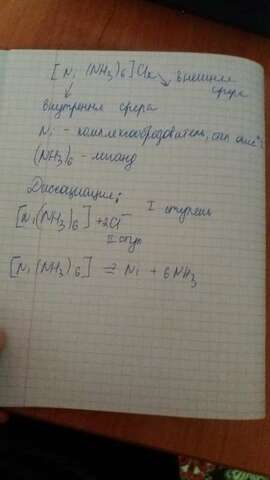 [Ni (NH3)6]Cl2 внешняя
сфера
внутренняя сфера
Ni - комплексообразователь,
(NH3)6 - лиганд
Диссоциация:
I ступень
[Ni(NH3)6] +2Cl-
II ступ
[Ni(NH3)6] ⇄ Ni + 6NH3